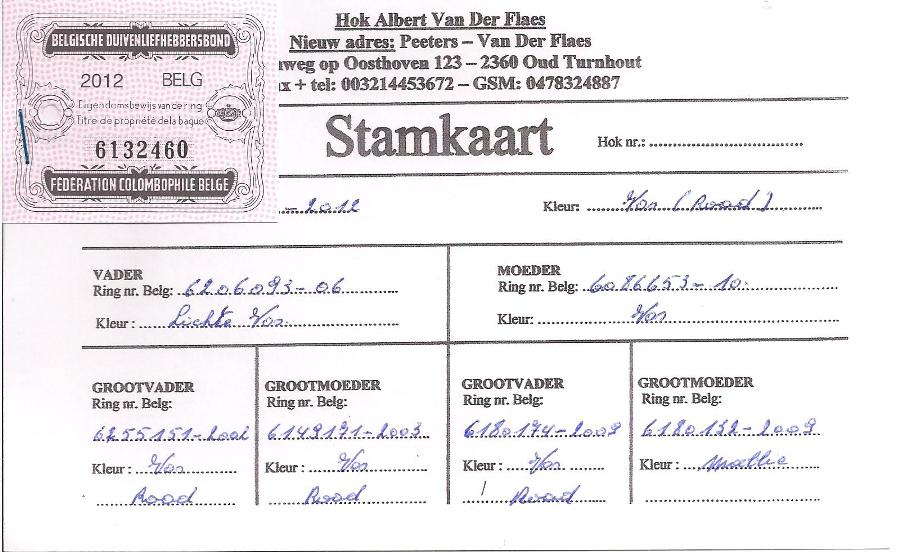 BELGISCHE DUIVENLIEFHEBBERSBOND
2012 BELG
Eigendomsbewijs van de ring
Titre de propriété de la bague
6132460
FÉDÉRATION COLOMBOPHILE BELGE
Hok Albert Van Der Flaes
Nieuw adres: Peeters – Van Der Flaes
weg op Oosthoven 123 – 2360 Oud Turnhout
x + tel: 003214453672 – GSM: 0478324887
Stamkaart
Hok nr.:
-2012
Kleur: Vos (Rood)
VADER
Ring nr. Belg: 6206093-06
Kleur: Lichte Vos
MOEDER
Ring nr. Belg: 6086653-10
Kleur: Vos
GROOTVADER
Ring nr. Belg:
6255151-2002
Kleur: Vos
Rood
GROOTMOEDER
Ring nr. Belg:
6149171-2003
Kleur: Vos
Rood
GROOTVADER
Ring nr. Belg:
6180174-2009
Kleur: Vos
Rood
GROOTMOEDER
Ring nr. Belg:
6180132-2009
Kleur: